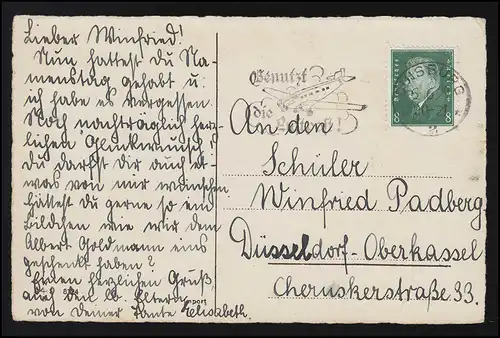 Lieber Winfried!
Nun hattest Du Na-
menstag gehabt u.
ich habe es vergessen.
Doch nachträglich herz-
lichen Glückwunsch!
Du darfst Dir auch et-
was von mir wünschen
hättest Du gerne so ein
Bildchen wie wir dem
Albert Goldmann eins
geschenkt haben?
Einen herzlichen Gruß,
auch den lb. Eltern
von Deiner Tante Elisabeth.
Benutzt
die
An den
Schüler
Winfried Padberg
Düsseldorf-Oberkassel
Cheruskerstraße 33.
8 8